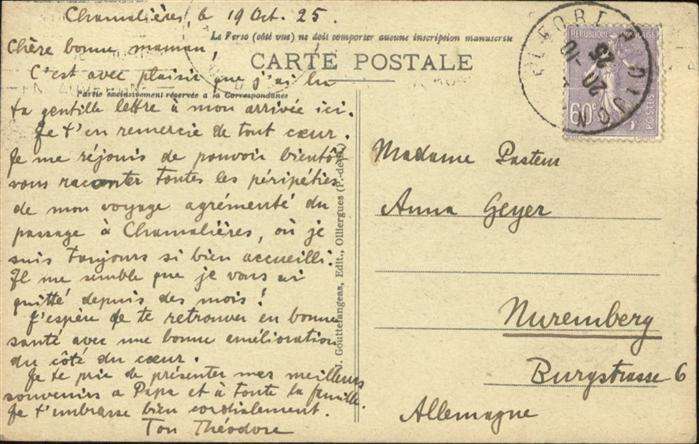 Chamalières, le 19 Oct. 25.
Le Perso (côté vue) ne doit comporter aucune inscription manuscrite
CARTE POSTALE
Partie exclusivement réservée à la Correspondance
Chère bonne maman,
C'est avec plaisir que j'ai lu
ta gentille lettre à mon arrivée ici.
Je t'en remercie de tout cœur.
Je me réjouis de pouvoir bientôt
vous raconter toutes les péripéties
de mon voyage agrémenté du
passage à Chamalières, où je
suis toujours si bien accueilli.
Il me semble que je vous ai
quitté depuis des mois !
J'espère de te retrouver en bonne
santé avec une bonne amélioration
du côté du cœur.
Je te prie de présenter mes meilleurs
souvenirs à Papa et à toute la famille.
Je t'embrasse bien cordialement.
Ton Théodore
Gouttefangeas, Edit., Olliergues (P.-de-D.)
BELFORT A DIJON
20 -10
25
RÉPUBLIQUE
60c
POSTES
Madame Pasteur
Anna Geyer
Nuremberg
Burgstrasse 6
Allemagne